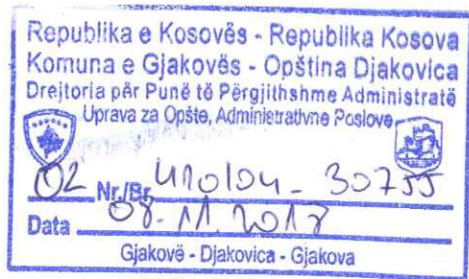 Republika e Kosovës - Republika Kosova
Komuna e Gjakovës - Opština Djakovica
Drejtoria për Punë të Përgjithshme Administratë
Uprava za Opšte, Administrativne Poslove
02 Nr./Br. 410/04 - 30755
Data 08.11.2018
Gjakovë - Djakovica - Gjakova